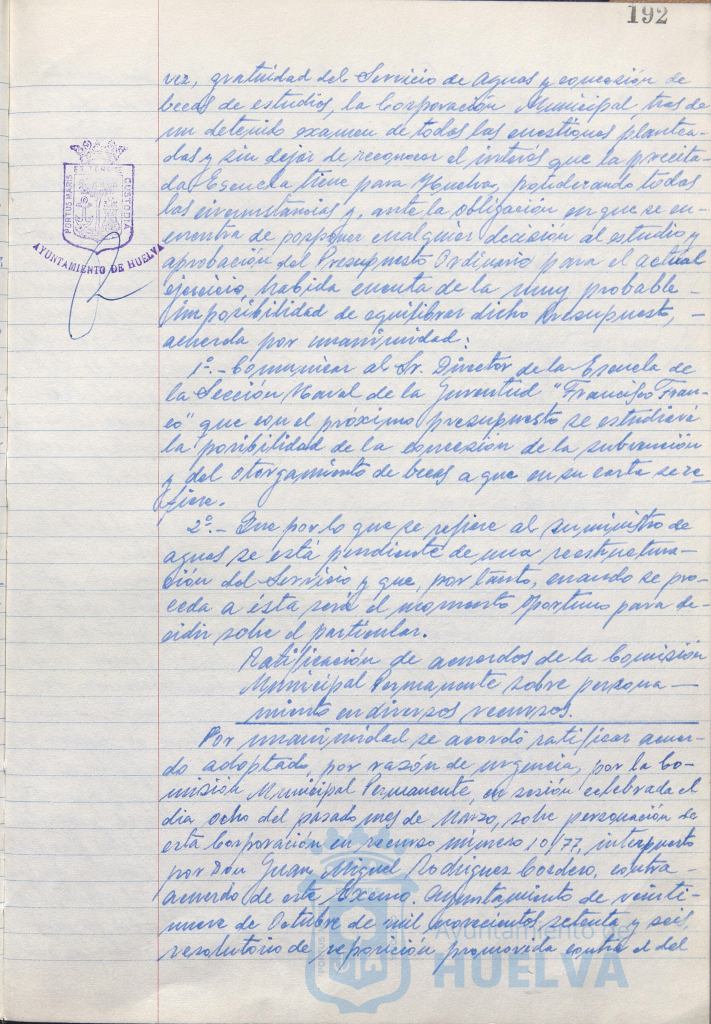 192
vez, gratuidad del Servicio de Aguas y concesión de
becas de estudios, la Corporación Municipal, tras de
un detenido examen de todas las cuestiones plantea-
das y sin dejar de reconocer el interés que la precita-
da Escuela tiene para Huelva, ponderando todas
las circunstancias y, ante la obligación en que se en-
cuentra de posponer cualquier decisión al estudio y
aprobación del Presupuesto Ordinario para el actual
ejercicio, habida cuenta de la muy probable -
imposibilidad de equilibrar dicho Presupuesto, -
acuerda por unanimidad:
1º.- Comunicar al Sr. Director de la Escuela de
la Sección Naval de la Juventud "Francisco Fran-
co" que con el próximo presupuesto se estudiará
la posibilidad de la concesión de la subvención
y del otorgamiento de becas a que en su carta se re-
fiere.
2º.- Que por lo que se refiere al suministro de
aguas se está pendiente de una reestructura-
ción del Servicio y que, por tanto, cuando se pro-
ceda a ésta será el momento oportuno para de-
cidir sobre el particular.
Ratificación de acuerdos de la Comisión
Municipal Permanente sobre persona-
miento en diversos recursos.
Por unanimidad se acordó ratificar acuer-
do adoptado, por razón de urgencia, por la Co-
misión Municipal Permanente, en sesión celebrada el
día ocho del pasado mes de Marzo, sobre personación de
esta Corporación en recurso número 10/77, interpuesto
por Don Juan Miguel Rodríguez Cordero, contra
acuerdo de este Excmo. Ayuntamiento de veinti-
nueve de Octubre de mil novecientos setenta y seis,
resolutorio de reposición promovida contra el del
PORTUS MARIS ET TERRE CUSTODIA
AYUNTAMIENTO DE HUELVA
Ayuntamiento de
HUELVA